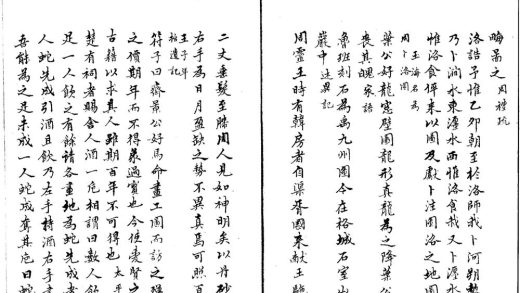 晦冪之周禮疏
洛誥予惟乙卯朝至於洛師我卜河朔黎
乃卜澗水東瀍水西惟洛食我又卜瀍水
惟洛食伻來以圖及獻卜注圖洛之地圖
周卜洛圖
玉海名為
葉公好龍室壁圖龍形真龍為之降葉公
喪其魄家語
魯班刻石為禹九州圖今在洛城石室山
巖中述異記
周靈王時有韓房者自渠胥國來獻玉駱
二丈垂髮至膝周人見如神明矣以丹砂
右手為日月盈缺之勢不異真焉可照百
王子年
拾遺記
符子曰齊景公好馬命畫工圖而訪之殫
之價期年而不得暴過實也今使愛賢之
古籍以求真人雖期百年不可得也太平
楚有祠者賜舍人酒一卮相謂曰數人飲
足一人飲之有餘請各畫地為蛇先成者
人蛇先成引酒且飲乃左手持酒右手畫
吾能為之足未成一人蛇成奪其卮曰蛇